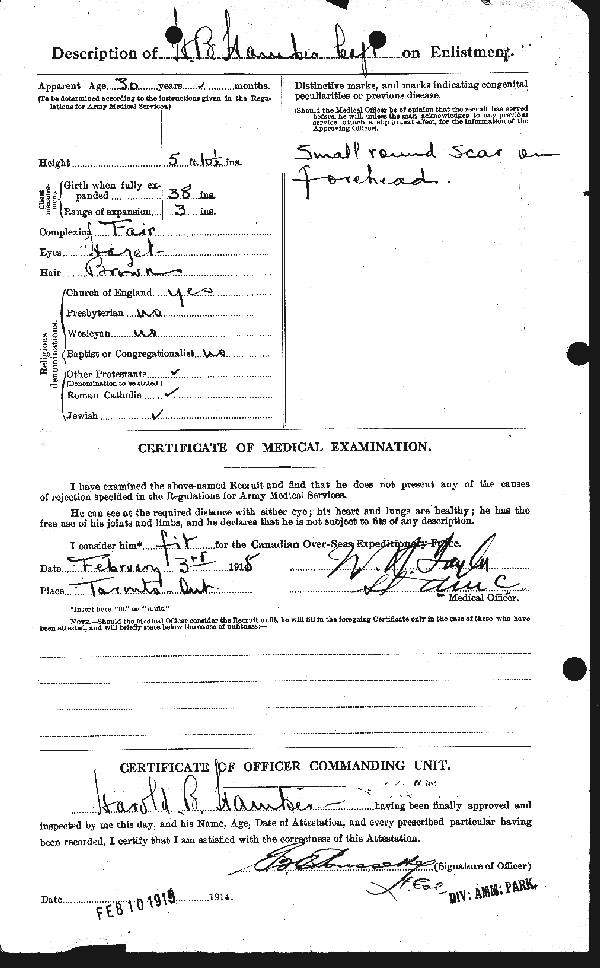 Description of H B on Enlistment.
Apparent Age 30 years months.
(To be determined according to the instructions given in the Regulations for Army Medical Services.)
Height 5 ft. 10½ ins.
Chest measurement
Girth when fully expanded 38 ins.
Range of expansion 3 ins.
Complexion Fair
Eyes Hazel
Hair Brown
Religious denominations.
Church of England yes
Presbyterian no
Wesleyan no
Baptist or Congregationalist no
Other Protestants ✓
(Denomination to be stated.)
Roman Catholic ✓
Jewish ✓
Distinctive marks, and marks indicating congenital
peculiarities or previous disease.
(Should the Medical Officer be of opinion that the recruit has served
before, he will, unless the man acknowledges to any previous
service, attach a slip to that effect, for the information of the
Approving Officer).
Small round scar on
forehead.
CERTIFICATE OF MEDICAL EXAMINATION.
I have examined the above-named Recruit and find that he does not present any of the causes
of rejection specified in the Regulations for Army Medical Services.
He can see at the required distance with either eye; his heart and lungs are healthy; he has the
free use of his joints and limbs, and he declares that he is not subject to fits of any description.
I consider him* fit for the Canadian Over-Seas Expeditionary Force.
Date February 3rd 1915
Place Toronto Ont
Medical Officer.
*Insert here "fit" or "unfit"
NOTE.—Should the Medical Officer consider the Recruit unfit, he will fill in the foregoing Certificate only in the case of those who have
been attested, and will briefly state below the cause of unfitness:—
CERTIFICATE OF OFFICER COMMANDING UNIT.
Harold B having been finally approved and
inspected by me this day, and his Name, Age, Date of Attestation, and every prescribed particular having
been recorded, I certify that I am satisfied with the correctness of this Attestation.
(Signature of Officer)
Date FEB 10 1915 1914.
DIV: AMM: PARK.